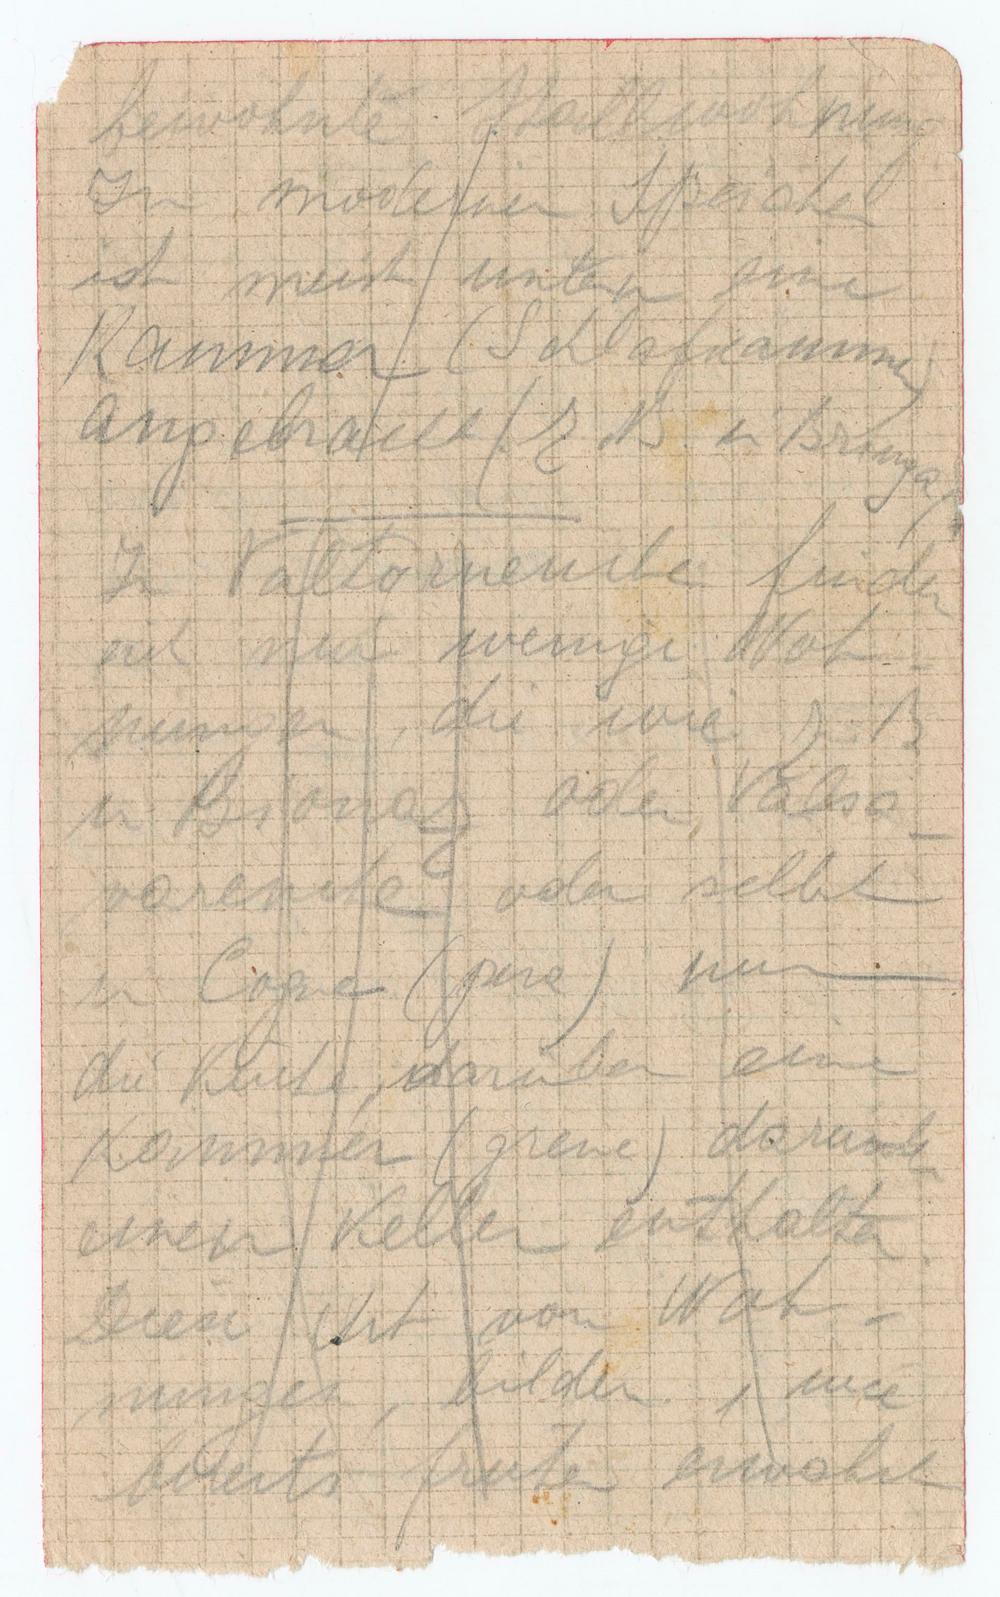 bewohnte Stallwohnung
In modernen Speicher
ist meist unten eine
Kammer (Schlafkammer)
angebracht (z B in Brionga
In Valtornenche finden
sich nur wenige Woh-
nungen, die wie z. B
in Bionaz oder Valsa-
varenche oder selbst
in Cogne (pera) nur
die Küche, darüber eine
Kammer (grene) darunter
einen Keller enthalten
Diese Art von Woh-
nungen, bilden, wie
bereits früher erwähnt